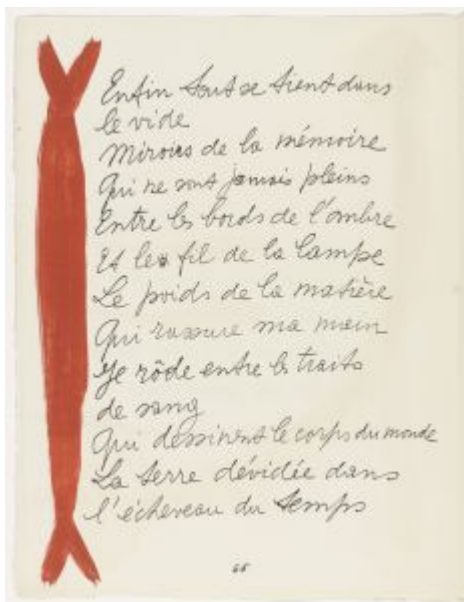 Enfin tout se tient dans
le vide
Miroirs de la mémoire
Qui ne sont jamais pleins
Entre les bords de l'ombre
Et le fil de la lampe
Le poids de la matière
Qui rassure ma main
Je rôde entre les traits
de sang
Qui dessinent le corps du monde
La terre dévidée dans
l'écheveau du temps